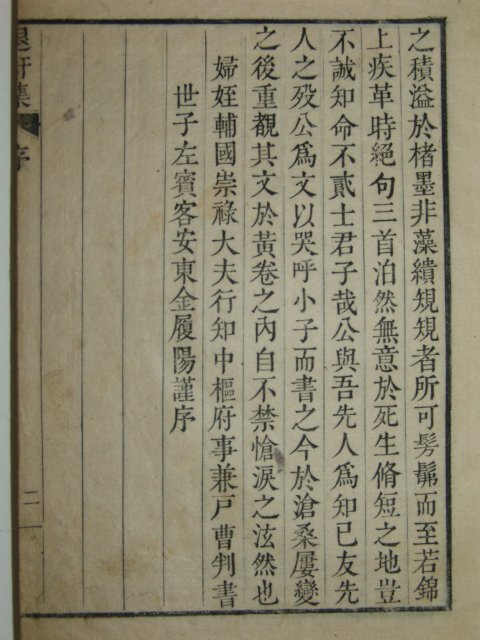 之積溢於楮墨非藻繢規規者所可髣髴而至若錦
上疾革時絕句三首泊然無意於死生脩短之地豈
不誠知命不貳士君子哉公與吾先人爲知己友先
人之歿公爲文以哭呼小子而書之今於滄桑屢變
之後重覩其文於黃卷之內自不禁愴淚之泫然也
婦姪輔國崇祿大夫行知中樞府事兼戶曹判書
世子左賓客安東金履陽謹序
軒集
序
二